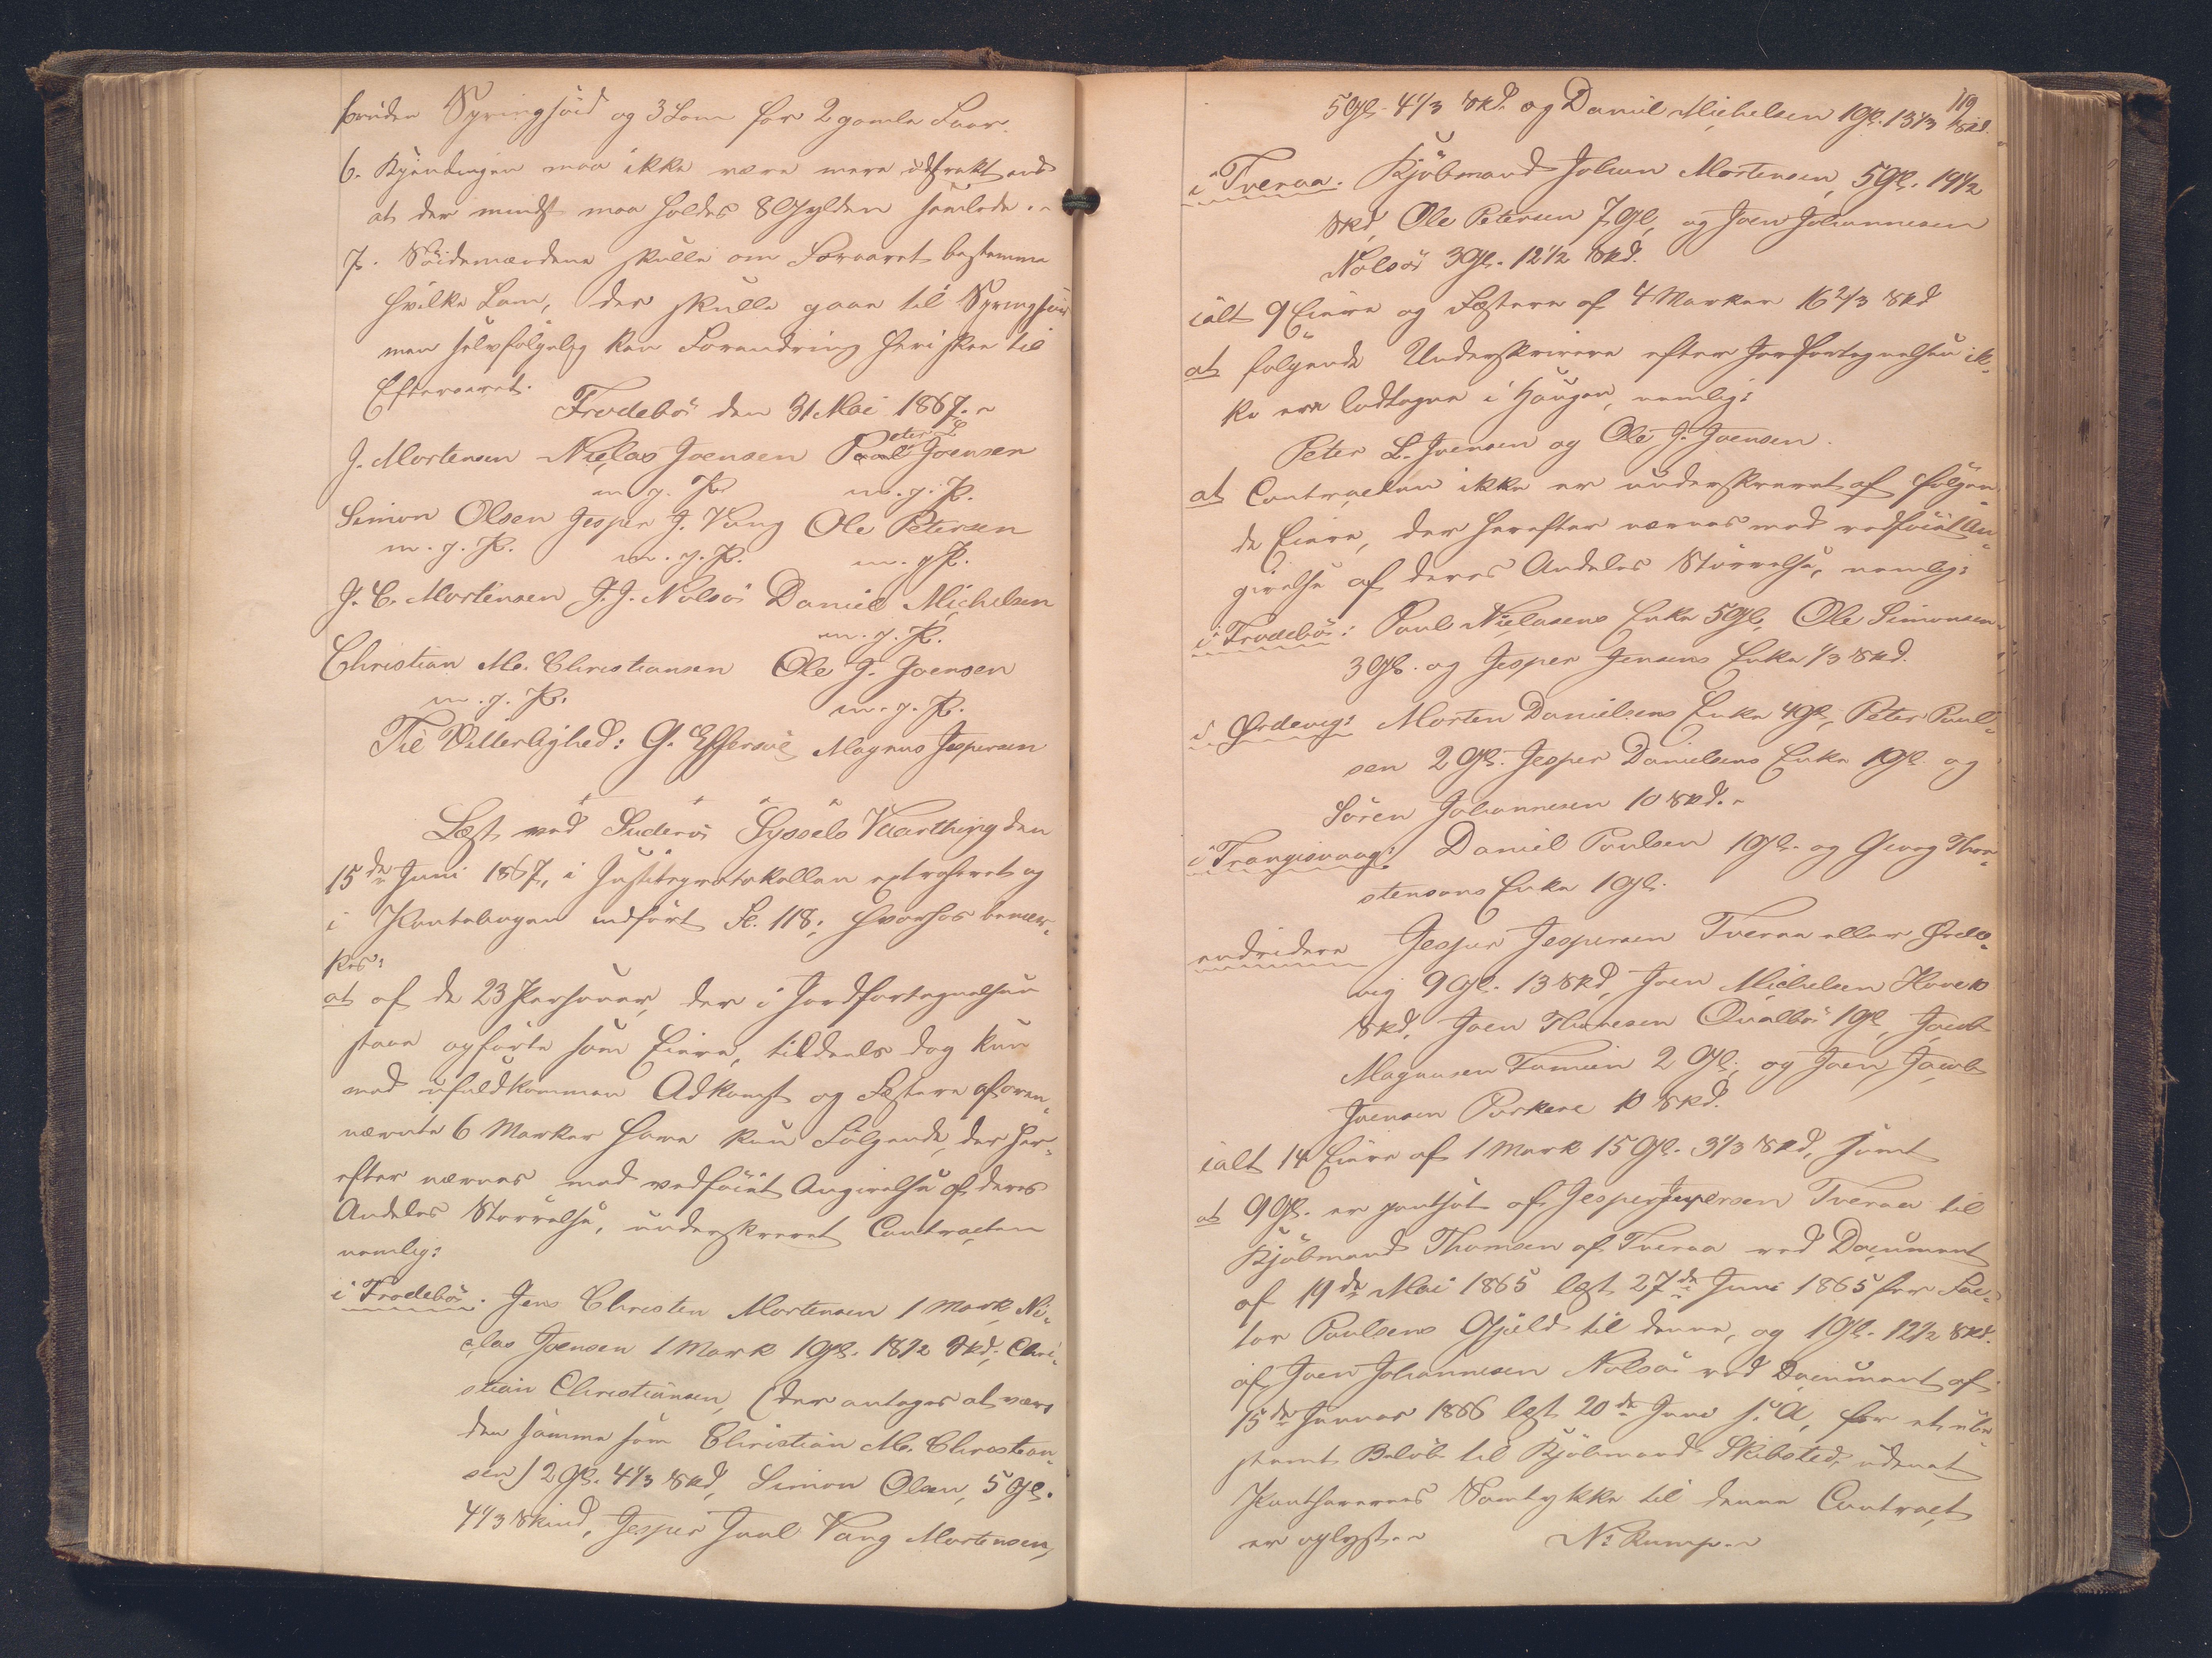 foruden Springseid og 3 Lam for 2 gamle Faar.
6. Kjendingen maa ikke være mere udstrakt end
at der mindst maa holdes 8 Gylden samlede.
7. Seidemændene skulle om Foraaret bestemme
hvilke Lam, der skulle gaae til Springseid
men selvfølgelig kan Forandring heri skee til
Efteraaret.
Frodebö den 31 Mai 1867.
J. Mortensen Niclas Joensen Peter L Joensen
m. g. P. m. g. P.
Simon Olsen Jesper J. Vang Ole Petersen
m. g. P. m. g. P. m. g. P.
J. C. Mortensen J. J. Nolsö Daniel Michelsen
m. g. P.
Christian M. Christiansen Ole J. Joensen
m. g. P. m. g. P.
Til Vitterlighed: G. Effersøe Magnus Jespersen
Læst ved Suderö Syssels Vaarthing den
15de Juni 1867, i Justitsprotokollen extraheret og
i Pantebogen indført Fo. 118; hvorhos bemær-
kes:
at af de 23 Personer, der i Jordfortegnelsen
staae opførte som Eiere, tildeels dog kun
med ufuldkommen Adkomst og Fæstere af oven-
nævnte 6 Marker have kun Følgende, der her-
efter nævnes med vedføiet Angivelse af deres
Andeles Størrelse, underskrevet Contracten
nemlig:
i Frodebö: Jens Christen Mortensen 1 Mark, Ni-
clas Joensen 1 Mark 1 Gl. 18 1/2 Skd; Chri-
stian Christiansen, (der antages at være
den samme som Christian M. Christian-
sen) 2 Gl. 4 1/3 Skd, Simon Olsen, 5 Gl.
4 1/3 Skind, Jesper Juul Vang Mortensen,
119
5 Gl. 4 1/3 Skd. og Daniel Michelsen 1 Gl. 13 1/3 Skd.
i Tveraa. Kjöbmand Johan Mortensen, 5 Gl. 19 1/2
Skd, Ole Petersen 7 Gl, og Joen Johannesen
Nolsö 3 Gl. 12 1/2 Skd.
ialt 9 Eiere og Fæstere af 4 Marker 16 2/3 Skd
at følgende Underskrivere efter Jordfortegnelsen ik-
ke ere lodtagne i Haugen, nemlig:
Peter L. Joensen og Ole J. Joensen.
at Contracten ikke er underskrevet af følgen-
de Eiere, der herefter nævnes med vedføiet An-
givelse af deres Andeles Størrelse, nemlig:
i Frodebö: Poul Niclasens Enke 5 Gl, Ole Simonsen
3 Gl. og Jesper Jensens Enke 1/3 Skd.
i Ördevig: Morten Danielsens Enke 4 Gl, Peter Poul-
sen 2 Gl. Jesper Danielsens Enke 1 Gl. og
Sören Johannesen 10 Skd.
i Trangisvaag: Daniel Poulsen 1 Gl. og Georg Thor-
stensens Enke 1 Gl.
endvidere Jesper Jespersen Tveraa eller Örde-
vig 9 Gl. 13 Skd, Joen Michelsen Hove 10
Skd, Joen Thomesen Qvalbö 1 Gl, Jacob
Magnusen Famien 2 Gl; og Joen Jacob
Joensen Porkere 10 Skd.
ialt 14 Eiere af 1 Mark 15 Gl. 3 1/3 Skd, samt
at 9 Gl. er pantsat af Jesper Jespersen Tveraa til
Kjöbmand Thomsen af Tveraa ved Document
af 19de Mai 1865 læst 27de Juni 1865 for Fac-
tor Poulsens Gjæld til denne, og 1 Gl. 12 1/2 Skd.
af Joen Johannesen Nolsö ved Document af
15de Januar 1866 læst 20de Juni s. A, for et ube-
stemt Beløb til Kjöbmand Skibsted, uden at
Panthavernes Samtykke til denne Contract
er oplyst. N: Rump.